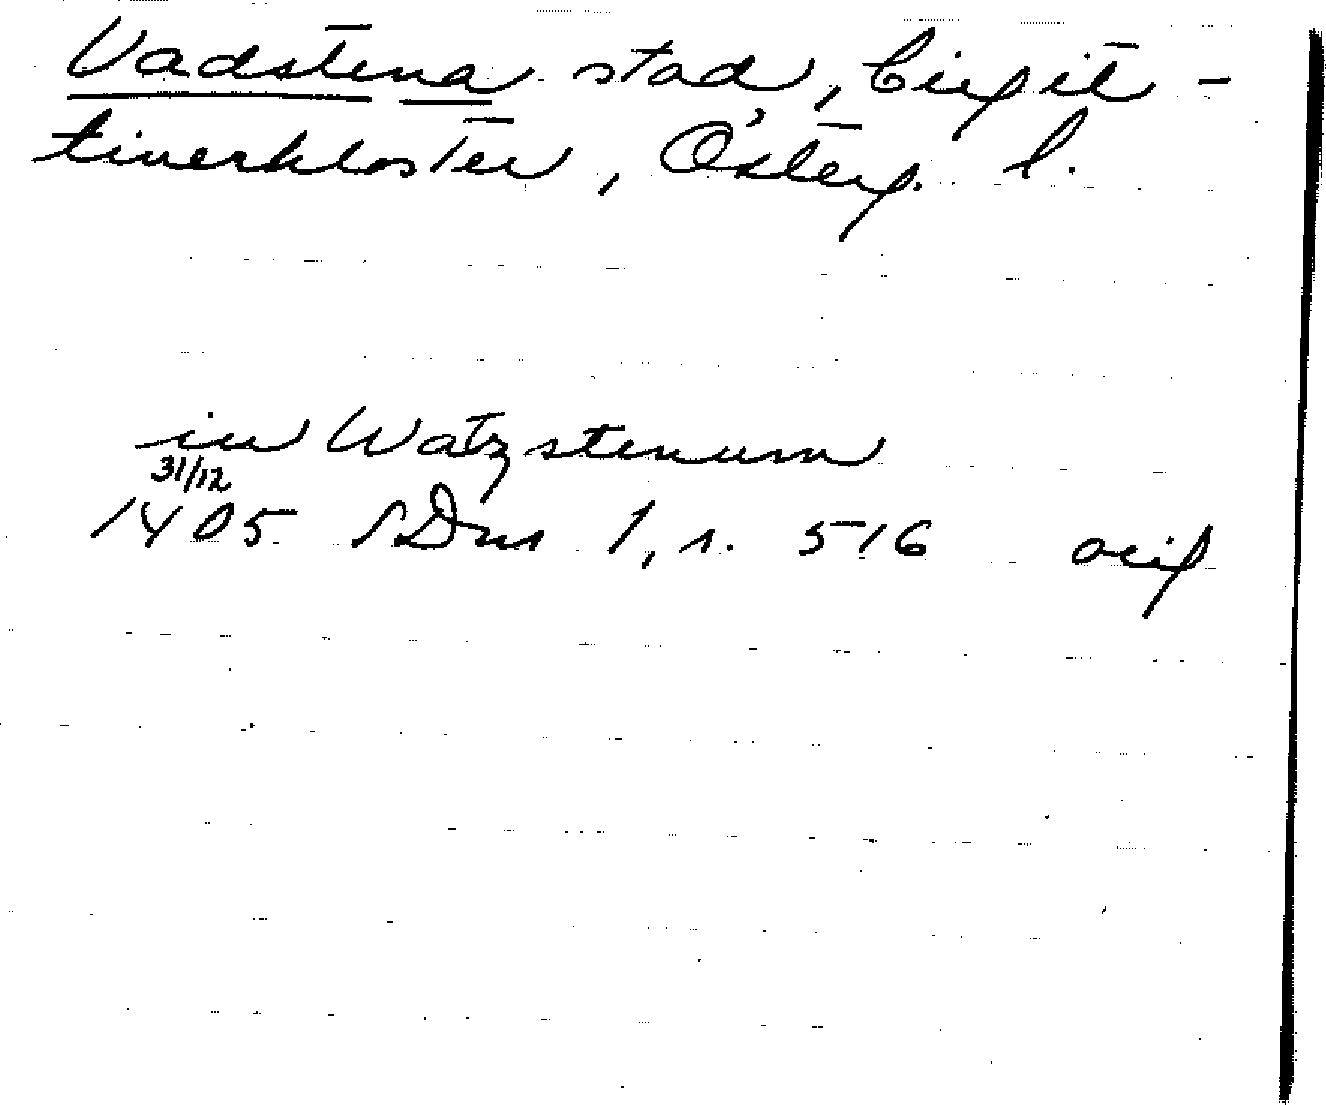 Vadstena stad, birgit-
tinerkloster, Österg. l.
in Watzstenum
31/12
1405 SDns 1, s. 516 orig